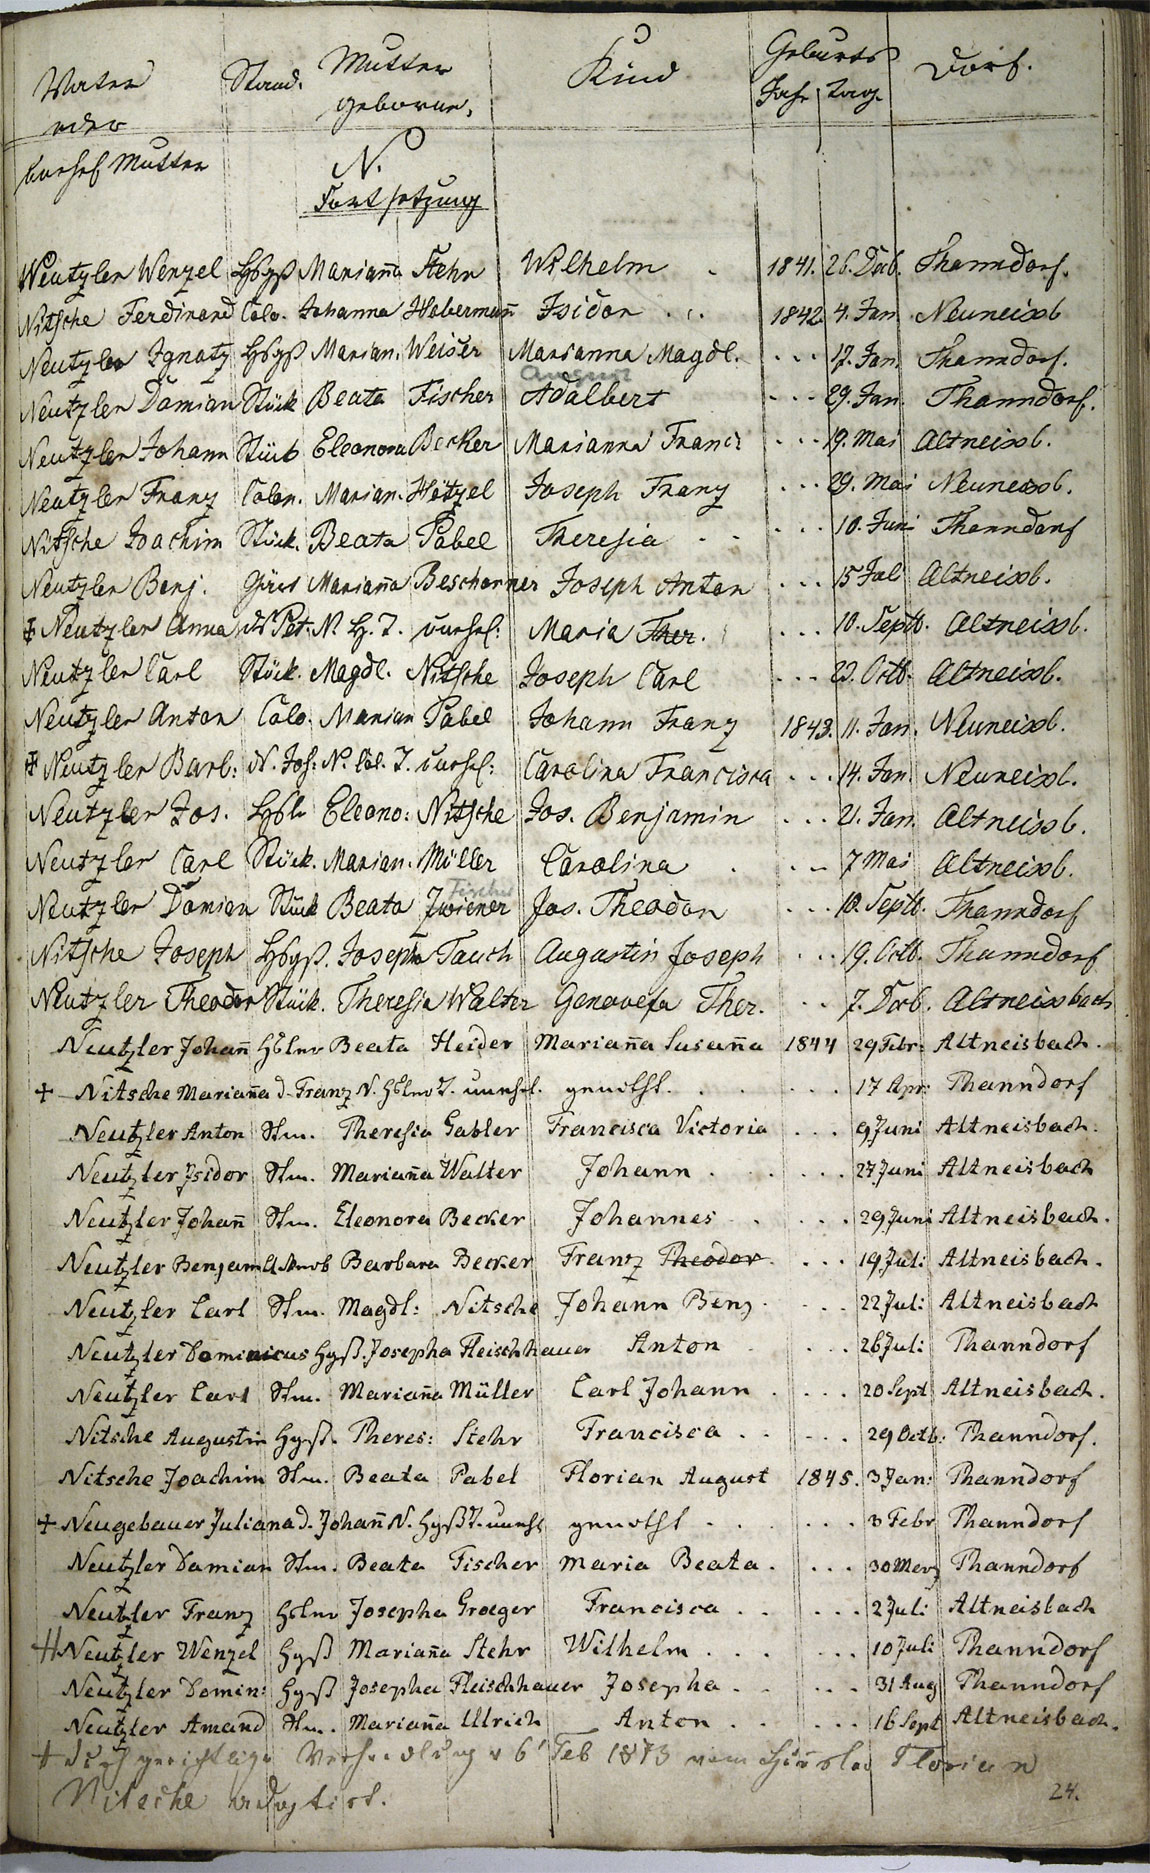 Vater Stand. Mutter Kind Geburts Dorf.
oder geborne. Jahr Tag.
unehel. Mutter N.
Fortsetzung
Neutzler Wenzel Hsgß Mariañа Stehr Wilhelm . 1841. 26. Decb. Thanndorf.
Nitsche Ferdinand Colo. Johanna Habermañ Isidor . . 1842 4. Jan. Neuneissb
Neutzler Ignatz Hsgß Marian. Weiser Marianna Magdl. ... 17. Jan. Thanndorf.
August
Neutzler Damian Stück Beata Fischer Adalbert ... 29. Jan. Thanndorf.
Neutzler Johann Stück Eleonora Becker Marianna Franci ... 19. Mai Altneissb.
Neutzler Franz Colon. Marian. Hetzel Joseph Franz ... 29. Mai Neuneissb.
Nitsche Joachim Stück. Beata Pabel Theresia . . ... 10. Juni Thanndorf
Neutzler Benj. Marianna Beschorner Joseph Anton ... 15 Jul Altneissb.
Neutzler Anna d Pet. N. H. T. unehel: Maria Ther. ... 10. Septb. Altneissb.
Neutzler Carl Stück. Magdl. Nitsche Joseph Carl ... 23. Octb. Altneissb.
Neutzler Anton Colo. Marian Pabel Johann Franz 1843. 11. Jan. Neuneissb.
Neutzler Barb: d. Jos: N. Col. T. unehel: Carolina Francisca ... 14. Jan. Neuneissb.
Neutzler Jos. Hsl Eleono: Nitsche Jos. Benjamin ... 21. Jan. Altneissb.
Neutzler Carl Stück. Marian. Müller Carolina . ... 7 Mai Altneissb.
Fischer
Neutzler Damian Stück Beata Zwiener Jos. Theodor ... 10. Septb. Thanndorf
Nitsche Joseph Hsgß. Josepha Tauch Augustin Joseph ... 19. Octb. Thanndorf
Neutzler Theodor Stück. Theresia Walter Genovefa Ther. .. 7. Decb. Altneissbach
Neutzler Johañ Hslnr Beata Heider Mariaña Susaña 1844 29 Febr: Altneisbach.
+ Nitsche Mariaña d. Franz N. Hslnr T. unehel. genothf. . ... 17 Apr: Thanndorf
Neutzler Anton Stm. Theresia Gabler Francisca Victoria ... 9 Juni Altneisbach.
Neutzler Isidor Stm. Mariaña Walter Johann . ... 27 Juni Altneisbach
Neutzler Johañ Stm. Eleonora Becker Johannes . ... 29 Juni Altneisbach.
Neutzler Benjam Barbara Becker Franz Theodor ... 19 Juli Altneisbach.
Neutzler Carl Stm. Magdl: Nitsche Johann Benj. ... 22 Juli Altneisbach
Neutzler Dominicus Hgß. Josepha Fleischhauer Anton ... 26 Juli Thanndorf
Neutzler Carl Stm. Mariaña Müller Carl Johann . ... 20 Sept Altneisbach.
Nitsche Augustin Hgß. Theres: Stehr Francisca . . ... 29 Octb: Thanndorf.
Nitsche Joachim Stm. Beata Pabel Florian August 1845. 3 Jan: Thanndorf
+ Neugebauer Juliana d. Johañ N. Hgß T. unehl genothf . ... 3 Febr Thanndorf
Neutzler Damian Stm. Beata Fischer Maria Beata. ... 30 Merz Thanndorf
Neutzler Franz Hslnr Josepha Groeger Francisca . . ... 2 Juli Altneisbach
Neutzler Wenzel Hgß Mariaña Stehr Wilhelm . . ... 10 Juli Thanndorf
Neutzler Domin: Hgß Josepha Fleischhauer Josepha . . ... 31 Aug Thanndorf
Neutzler Amand Stm. Mariaña Ulrich Anton . . ... 16 Sept Altneisbach.
+ Durch gerichtliche v 6' Feb 1873 vom Florian
Nitsche adoptirt.
24.